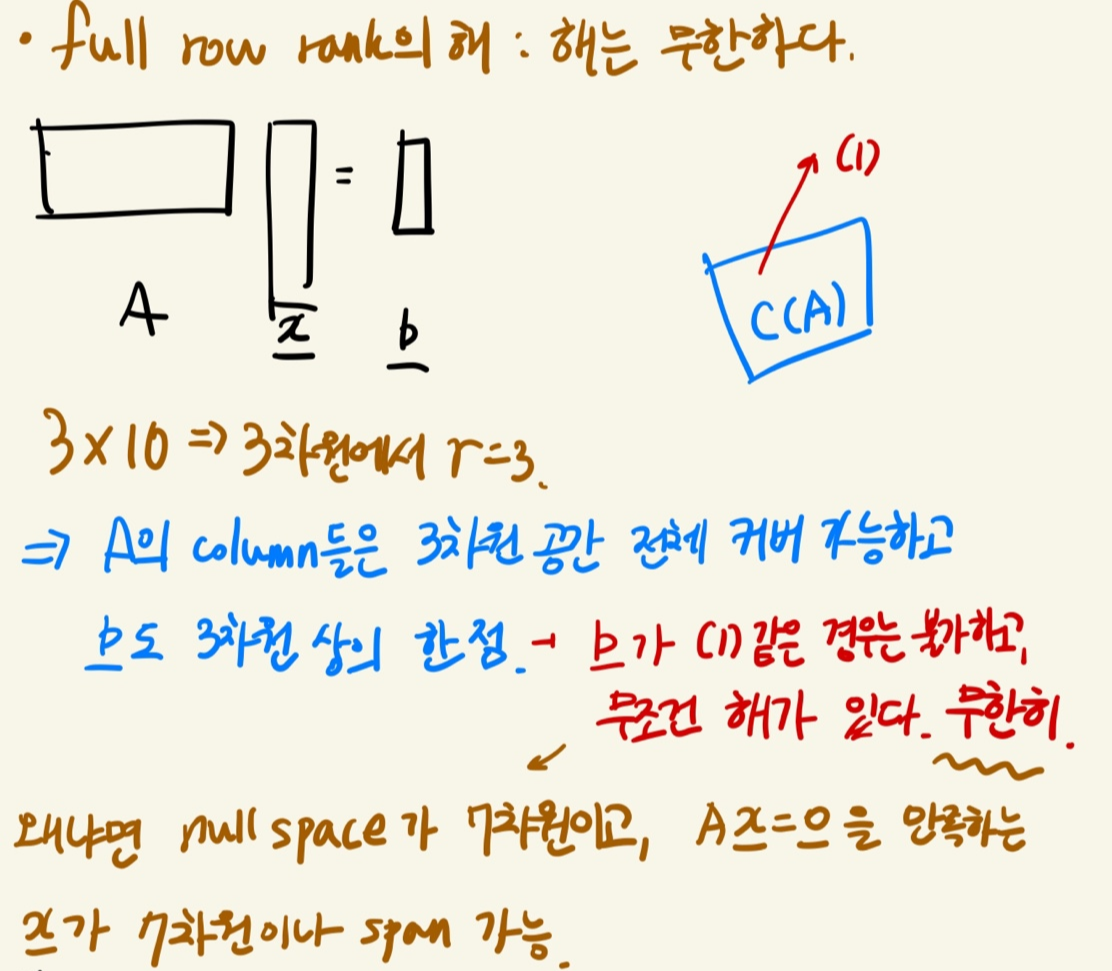 • full row rank의 해 : 해는 무한하다.
=
(1)
C(A)
A
x
b
3×10 => 3차원에서 r=3.
=> A의 column들은 3차원 공간 전체 커버 가능하고
b도 3차원 상의 한 점. → b가 (1) 같은 경우는 불가하고,
무조건 해가 있다. 무한히.
왜냐면 null space가 7차원이고, Ax=0을 만족하는
x가 7차원이나 span 가능.